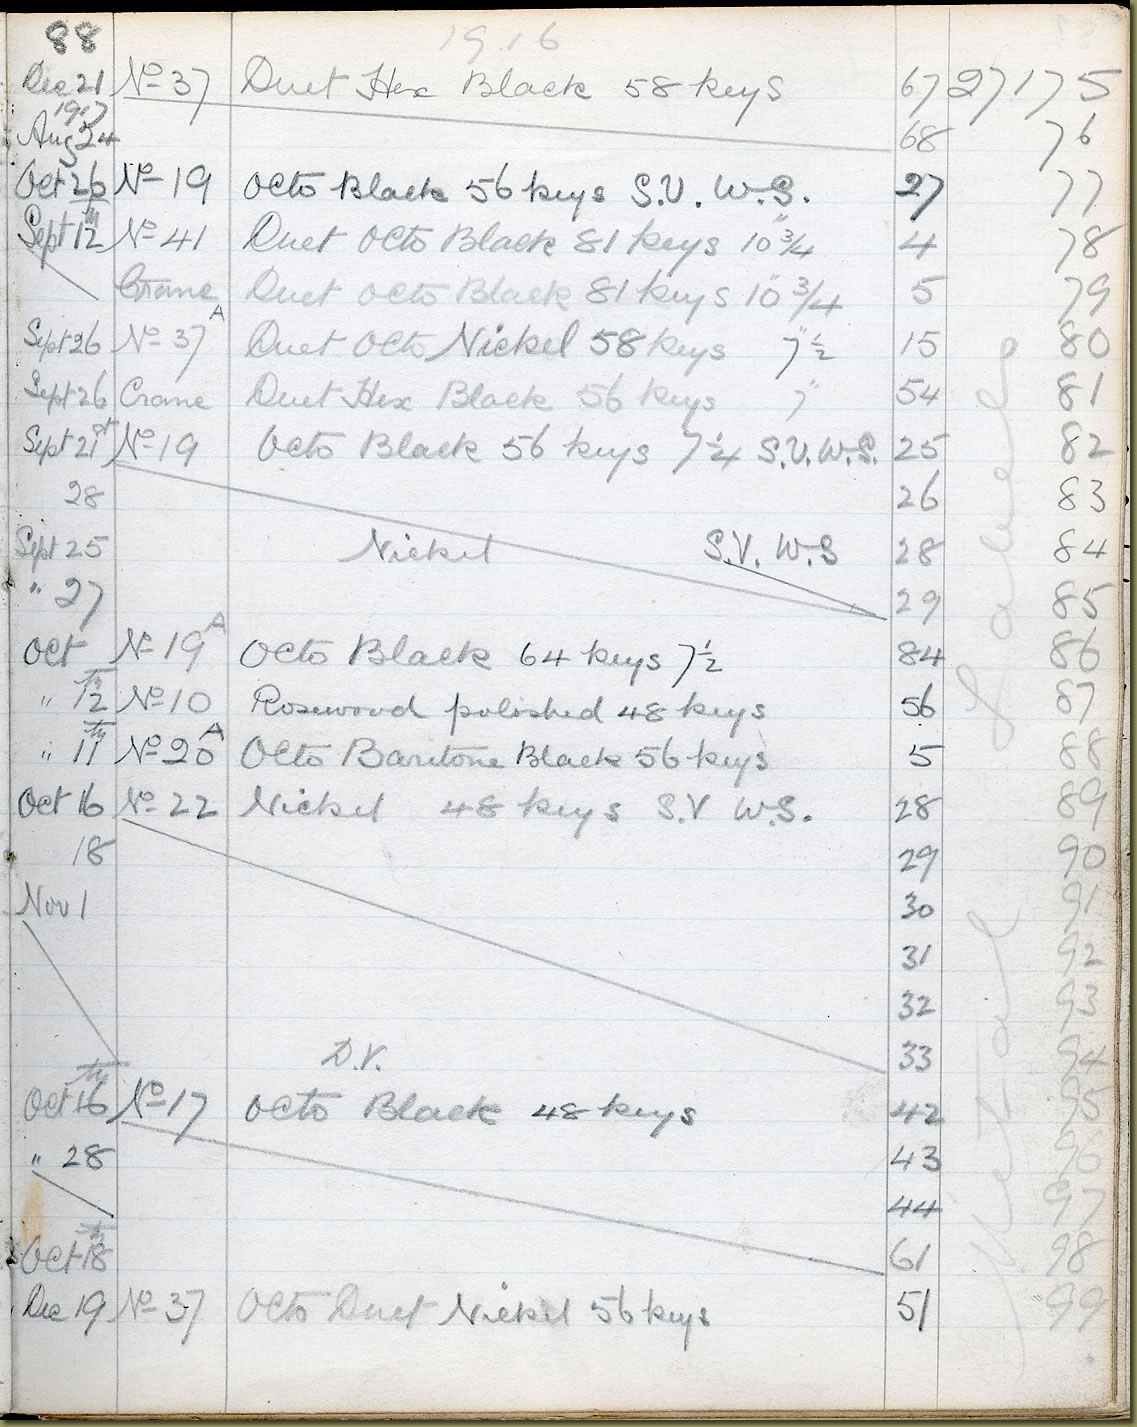 88 1916
Dec 21 No 37 Duet Hex Black 58 keys 67 27175
1917
Aug 24 68 76
Oct 26 No 19 Octo Black 56 keys S.V. W.S. 27 77
Sept 12th No 41 Duet Octo Black 81 keys 10" 3/4 4 78
Crane Duet Octo Black 81 keys 10" 3/4 5 79
Sept 26 No 37A Duet Octo Nickel 58 keys 7" 1/2 15 80
Sept 26 Crane Duet Hex Black 56 keys 7" 54 81
Sept 21st No 19 Octo Black 56 keys 7 1/4 S.V. W.S. 25 82
28 26 83
Sept 25 Nickel S.V. W.S 28 84
" 27 29 85
Oct No 19A Octo Black 64 keys 7 1/2 84 86
" 12th No 10 Rosewood polished 48 keys 56 87
" 11th No 20A Octo Baritone Black 56 keys 5 88
Oct 16 No 22 Nickel 48 keys S.V W.S. 28 89
18 29 90
Nov 1 30 91
31 92
32 93
D.V. 33 94
Oct 16th No 17 Octo Black 48 keys 42 95
" 28 43 96
44 97
Oct 18th 61 98
Dec 19 No 37 Octo Duet Nickel 56 keys 51 99